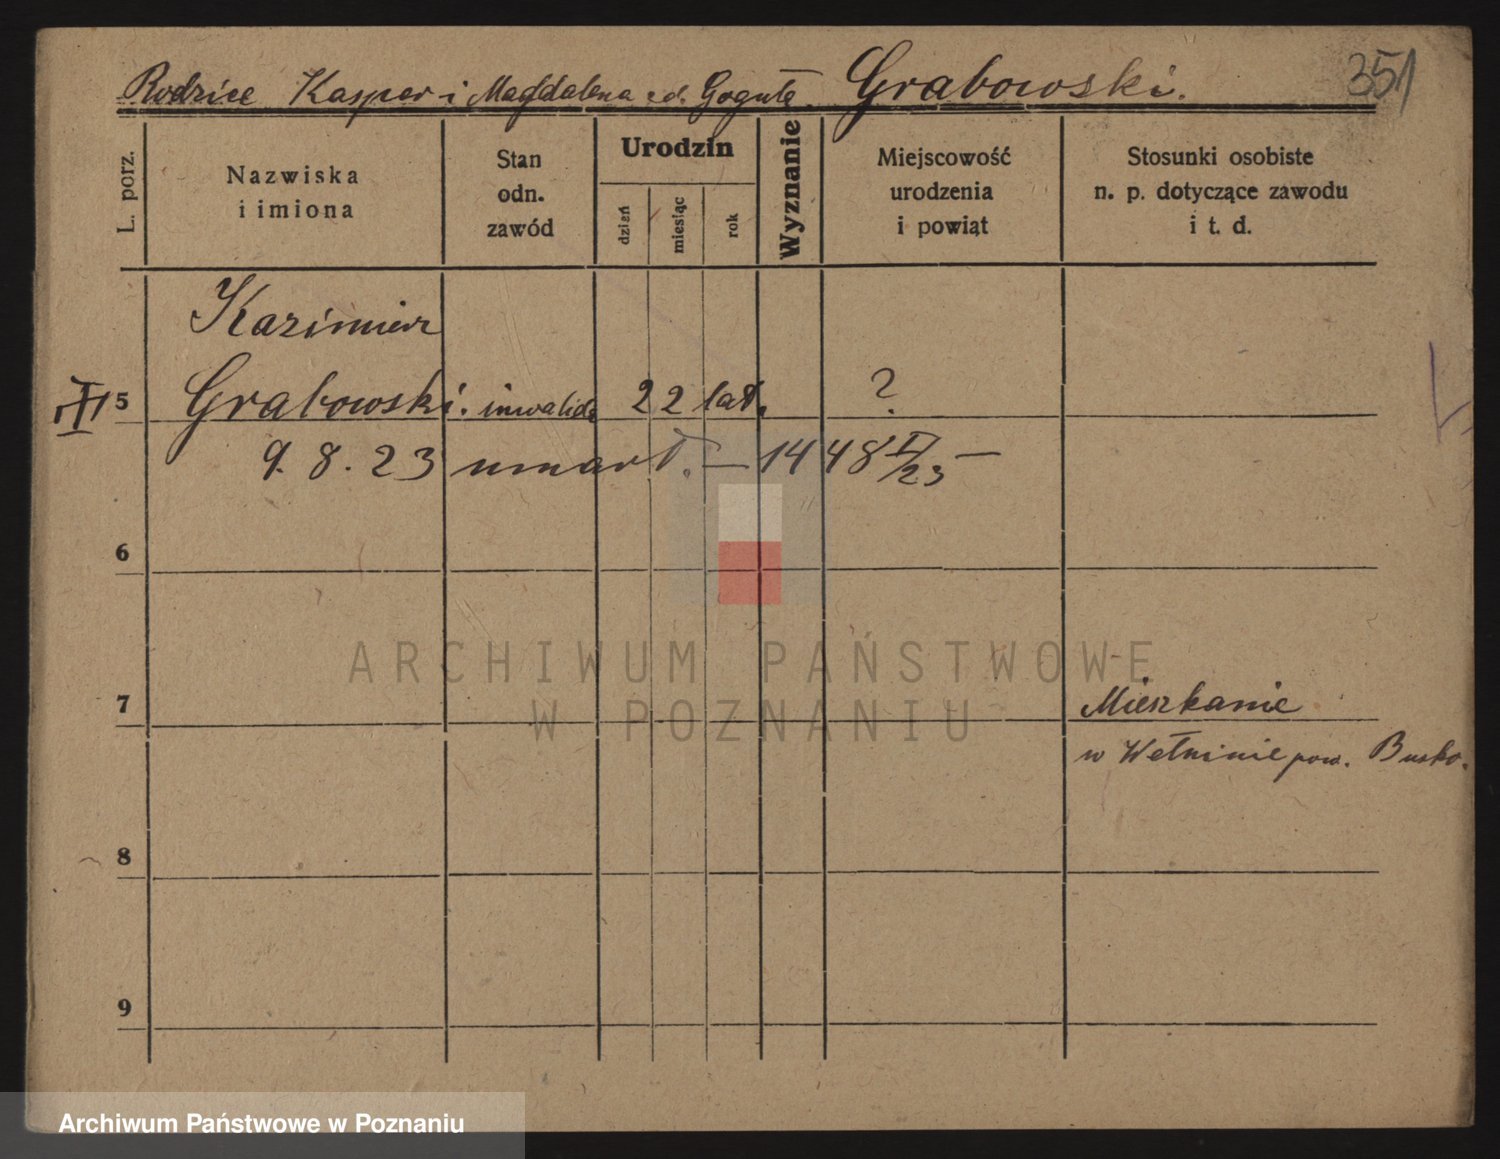 Rodzice Kasper i Magdalena z d. Grabowski.
351
L. porz.
Nazwiska
i imiona
Stan
odn.
zawód
Urodzin
dzień
miesiąc
rok
Wyznanie
Miejscowość
urodzenia
i powiąt
Stosunki osobiste
n. p. dotyczące zawodu
i t. d.
Kazimierz
III 5 Grabowski. inwalida 22 lat. ?
9. 8. 23 umarł. — 1448 II/23 —
6
7 Mieszkanie
w Wełninie pow. Busko.
8
9
ARCHIWUM PAŃSTWOWE
W POZNANIU
Archiwum Państwowe w Poznaniu